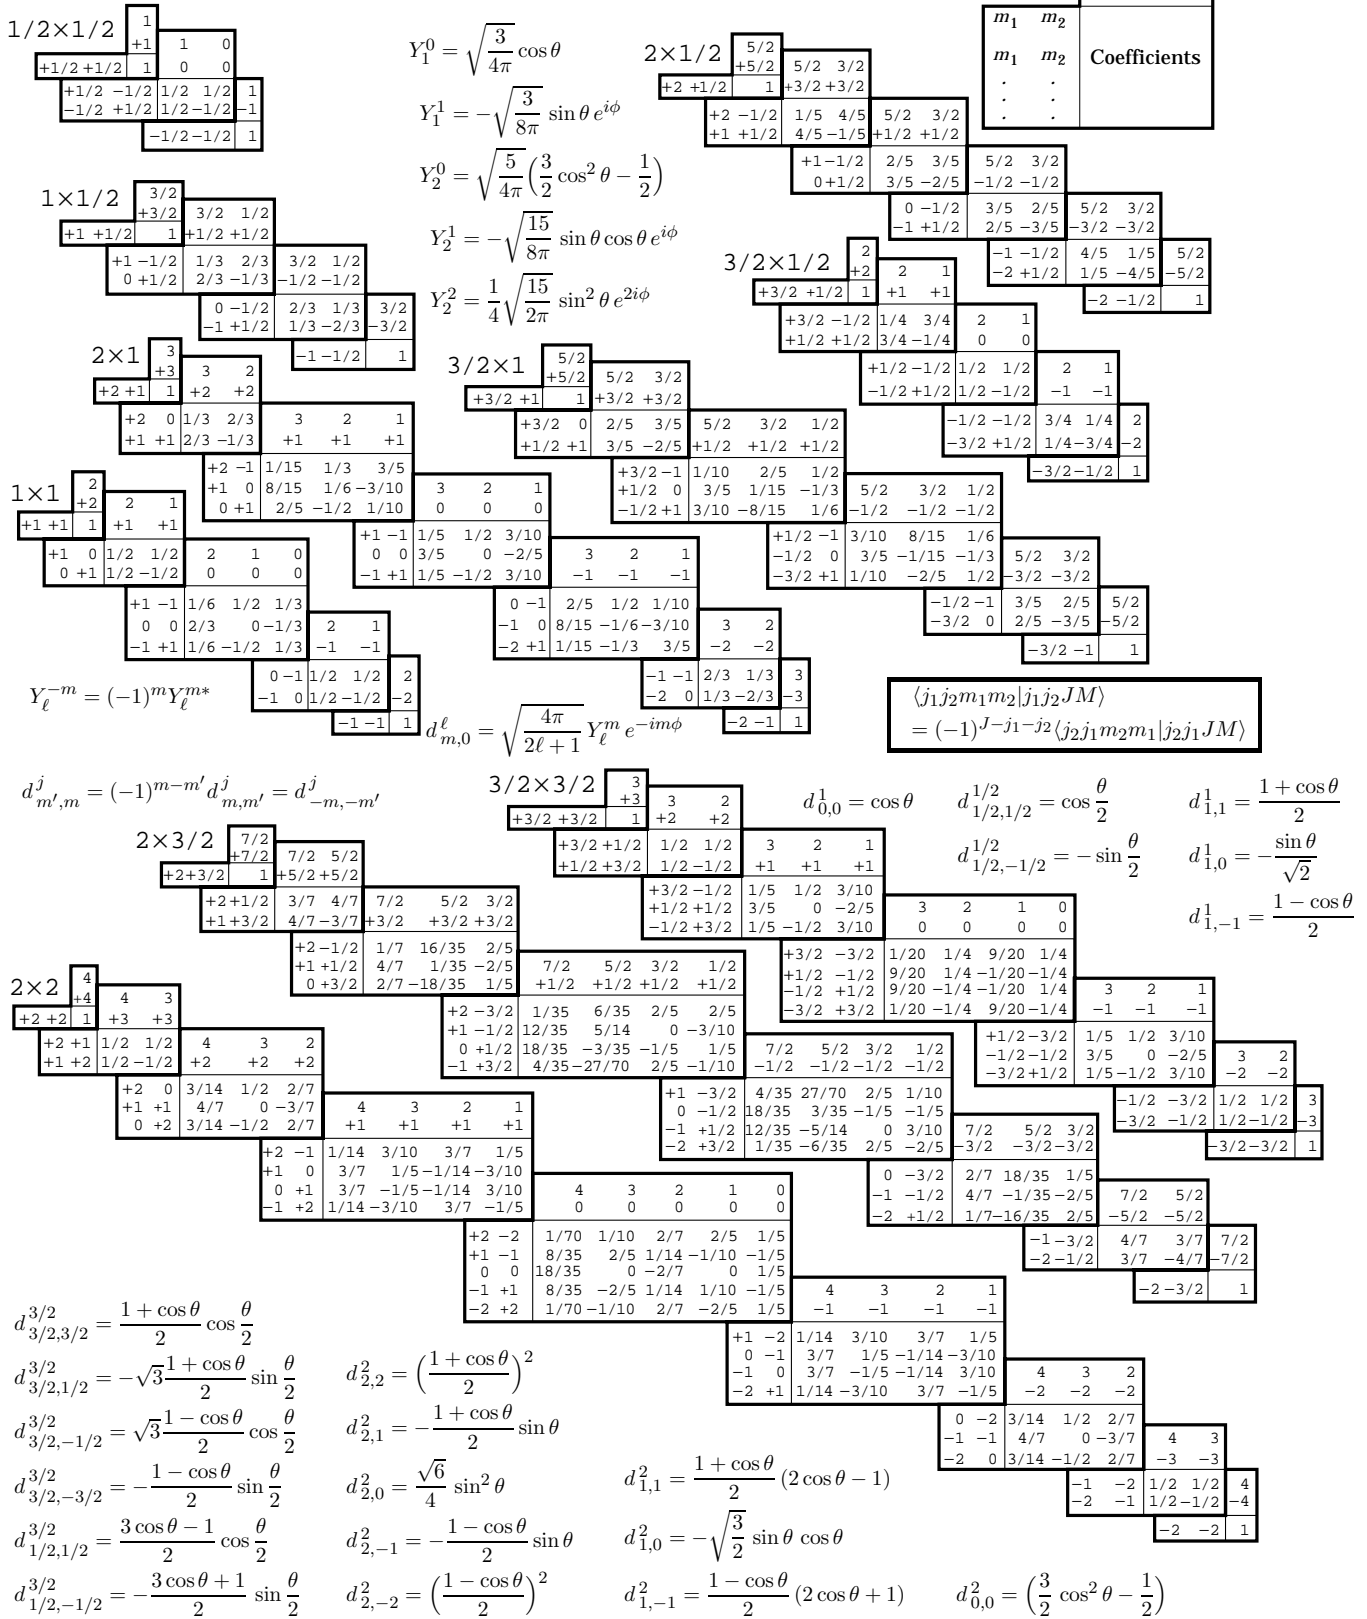 1/2×1/2
1
+1 1 0
+1/2 +1/2 1 0 0
+1/2 −1/2 1/2 1/2 1
−1/2 +1/2 1/2 −1/2 −1
−1/2 −1/2 1
Y_1^0 = √(3/4π) cos θ
Y_1^1 = −√(3/8π) sin θ e^{iϕ}
Y_2^0 = √(5/4π) (3/2 cos² θ − 1/2)
Y_2^1 = −√(15/8π) sin θ cos θ e^{iϕ}
Y_2^2 = 1/4 √(15/2π) sin² θ e^{2iϕ}
2×1/2
5/2
+5/2 5/2 3/2
+2 +1/2 1 +3/2 +3/2
+2 −1/2 1/5 4/5 5/2 3/2
+1 +1/2 4/5 −1/5 +1/2 +1/2
+1 −1/2 2/5 3/5 5/2 3/2
0 +1/2 3/5 −2/5 −1/2 −1/2
0 −1/2 3/5 2/5 5/2 3/2
−1 +1/2 2/5 −3/5 −3/2 −3/2
−1 −1/2 4/5 1/5 5/2
−2 +1/2 1/5 −4/5 −5/2
−2 −1/2 1
m1 m2
m1 m2 Coefficients
. .
. .
. .
1×1/2
3/2
+3/2 3/2 1/2
+1 +1/2 1 +1/2 +1/2
+1 −1/2 1/3 2/3 3/2 1/2
0 +1/2 2/3 −1/3 −1/2 −1/2
0 −1/2 2/3 1/3 3/2
−1 +1/2 1/3 −2/3 −3/2
−1 −1/2 1
3/2×1/2
2
+2 2 1
+3/2 +1/2 1 +1 +1
+3/2 −1/2 1/4 3/4 2 1
+1/2 +1/2 3/4 −1/4 0 0
+1/2 −1/2 1/2 1/2 2 1
−1/2 +1/2 1/2 −1/2 −1 −1
−1/2 −1/2 3/4 1/4 2
−3/2 +1/2 1/4 −3/4 −2
−3/2 −1/2 1
2×1
3
+3 3 2
+2 +1 1 +2 +2
+2 0 1/3 2/3 3 2 1
+1 +1 2/3 −1/3 +1 +1 +1
+2 −1 1/15 1/3 3/5
+1 0 8/15 1/6 −3/10 3 2 1
0 +1 2/5 −1/2 1/10 0 0 0
+1 −1 1/5 1/2 3/10
0 0 3/5 0 −2/5 3 2 1
−1 +1 1/5 −1/2 3/10 −1 −1 −1
0 −1 2/5 1/2 1/10
−1 0 8/15 −1/6 −3/10 3 2
−2 +1 1/15 −1/3 3/5 −2 −2
−1 −1 2/3 1/3 3
−2 0 1/3 −2/3 −3
−2 −1 1
3/2×1
5/2
+5/2 5/2 3/2
+3/2 +1 1 +3/2 +3/2
+3/2 0 2/5 3/5 5/2 3/2 1/2
+1/2 +1 3/5 −2/5 +1/2 +1/2 +1/2
+3/2 −1 1/10 2/5 1/2
+1/2 0 3/5 1/15 −1/3 5/2 3/2 1/2
−1/2 +1 3/10 −8/15 1/6 −1/2 −1/2 −1/2
+1/2 −1 3/10 8/15 1/6
−1/2 0 3/5 −1/15 −1/3 5/2 3/2
−3/2 +1 1/10 −2/5 1/2 −3/2 −3/2
−1/2 −1 3/5 2/5 5/2
−3/2 0 2/5 −3/5 −5/2
−3/2 −1 1
1×1
2
+2 2 1
+1 +1 1 +1 +1
+1 0 1/2 1/2 2 1 0
0 +1 1/2 −1/2 0 0 0
+1 −1 1/6 1/2 1/3
0 0 2/3 0 −1/3 2 1
−1 +1 1/6 −1/2 1/3 −1 −1
0 −1 1/2 1/2 2
−1 0 1/2 −1/2 −2
−1 −1 1
Y_ℓ^{−m} = (−1)^m Y_ℓ^{m*}
d^ℓ_{m,0} = √(4π/(2ℓ + 1)) Y_ℓ^m e^{−imϕ}
⟨j1j2m1m2|j1j2JM⟩
= (−1)^{J−j1−j2}⟨j2j1m2m1|j2j1JM⟩
d^j_{m′,m} = (−1)^{m−m′} d^j_{m,m′} = d^j_{−m,−m′}
3/2×3/2
3
+3 3 2
+3/2 +3/2 1 +2 +2
+3/2 +1/2 1/2 1/2 3 2 1
+1/2 +3/2 1/2 −1/2 +1 +1 +1
+3/2 −1/2 1/5 1/2 3/10
+1/2 +1/2 3/5 0 −2/5 3 2 1 0
−1/2 +3/2 1/5 −1/2 3/10 0 0 0 0
+3/2 −3/2 1/20 1/4 9/20 1/4
+1/2 −1/2 9/20 1/4 −1/20 −1/4
−1/2 +1/2 9/20 −1/4 −1/20 1/4 3 2 1
−3/2 +3/2 1/20 −1/4 9/20 −1/4 −1 −1 −1
+1/2 −3/2 1/5 1/2 3/10
−1/2 −1/2 3/5 0 −2/5 3 2
−3/2 +1/2 1/5 −1/2 3/10 −2 −2
−1/2 −3/2 1/2 1/2 3
−3/2 −1/2 1/2 −1/2 −3
−3/2 −3/2 1
d^1_{0,0} = cos θ
d^{1/2}_{1/2,1/2} = cos θ/2
d^{1/2}_{1/2,−1/2} = − sin θ/2
d^1_{1,1} = (1 + cos θ)/2
d^1_{1,0} = − sin θ/√2
d^1_{1,−1} = (1 − cos θ)/2
2×3/2
7/2
+7/2 7/2 5/2
+2 +3/2 1 +5/2 +5/2
+2 +1/2 3/7 4/7 7/2 5/2 3/2
+1 +3/2 4/7 −3/7 +3/2 +3/2 +3/2
+2 −1/2 1/7 16/35 2/5
+1 +1/2 4/7 1/35 −2/5 7/2 5/2 3/2 1/2
0 +3/2 2/7 −18/35 1/5 +1/2 +1/2 +1/2 +1/2
+2 −3/2 1/35 6/35 2/5 2/5
+1 −1/2 12/35 5/14 0 −3/10
0 +1/2 18/35 −3/35 −1/5 1/5 7/2 5/2 3/2 1/2
−1 +3/2 4/35 −27/70 2/5 −1/10 −1/2 −1/2 −1/2 −1/2
+1 −3/2 4/35 27/70 2/5 1/10
0 −1/2 18/35 3/35 −1/5 −1/5
−1 +1/2 12/35 −5/14 0 3/10 7/2 5/2 3/2
−2 +3/2 1/35 −6/35 2/5 −2/5 −3/2 −3/2 −3/2
0 −3/2 2/7 18/35 1/5
−1 −1/2 4/7 −1/35 −2/5 7/2 5/2
−2 +1/2 1/7 −16/35 2/5 −5/2 −5/2
−1 −3/2 4/7 3/7 7/2
−2 −1/2 3/7 −4/7 −7/2
−2 −3/2 1
2×2
4
+4 4 3
+2 +2 1 +3 +3
+2 +1 1/2 1/2 4 3 2
+1 +2 1/2 −1/2 +2 +2 +2
+2 0 3/14 1/2 2/7
+1 +1 4/7 0 −3/7 4 3 2 1
0 +2 3/14 −1/2 2/7 +1 +1 +1 +1
+2 −1 1/14 3/10 3/7 1/5
+1 0 3/7 1/5 −1/14 −3/10
0 +1 3/7 −1/5 −1/14 3/10 4 3 2 1 0
−1 +2 1/14 −3/10 3/7 −1/5 0 0 0 0 0
+2 −2 1/70 1/10 2/7 2/5 1/5
+1 −1 8/35 2/5 1/14 −1/10 −1/5
0 0 18/35 0 −2/7 0 1/5
−1 +1 8/35 −2/5 1/14 1/10 −1/5 4 3 2 1
−2 +2 1/70 −1/10 2/7 −2/5 1/5 −1 −1 −1 −1
+1 −2 1/14 3/10 3/7 1/5
0 −1 3/7 1/5 −1/14 −3/10
−1 0 3/7 −1/5 −1/14 3/10 4 3 2
−2 +1 1/14 −3/10 3/7 −1/5 −2 −2 −2
0 −2 3/14 1/2 2/7
−1 −1 4/7 0 −3/7 4 3
−2 0 3/14 −1/2 2/7 −3 −3
−1 −2 1/2 1/2 4
−2 −1 1/2 −1/2 −4
−2 −2 1
d^{3/2}_{3/2,3/2} = (1 + cos θ)/2 cos θ/2
d^{3/2}_{3/2,1/2} = −√3 (1 + cos θ)/2 sin θ/2
d^{3/2}_{3/2,−1/2} = √3 (1 − cos θ)/2 cos θ/2
d^{3/2}_{3/2,−3/2} = − (1 − cos θ)/2 sin θ/2
d^{3/2}_{1/2,1/2} = (3 cos θ − 1)/2 cos θ/2
d^{3/2}_{1/2,−1/2} = − (3 cos θ + 1)/2 sin θ/2
d^2_{2,2} = ((1 + cos θ)/2)²
d^2_{2,1} = − (1 + cos θ)/2 sin θ
d^2_{2,0} = √6/4 sin² θ
d^2_{2,−1} = − (1 − cos θ)/2 sin θ
d^2_{2,−2} = ((1 − cos θ)/2)²
d^2_{1,1} = (1 + cos θ)/2 (2 cos θ − 1)
d^2_{1,0} = −√(3/2) sin θ cos θ
d^2_{1,−1} = (1 − cos θ)/2 (2 cos θ + 1)
d^2_{0,0} = (3/2 cos² θ − 1/2)